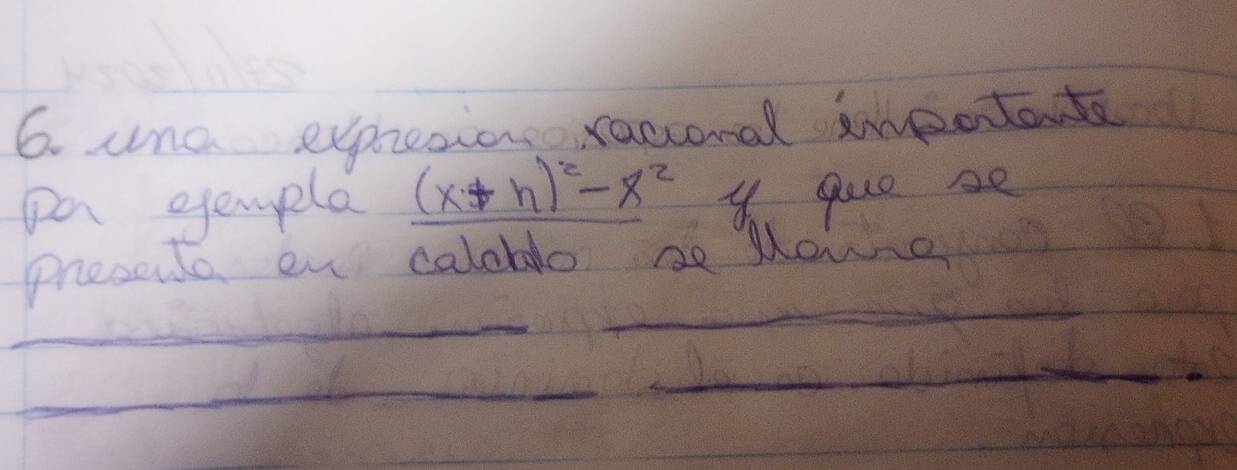 6. una expresion racional importante
por ejempla (x+h)²-x² y que se
presenta en calculo se llama